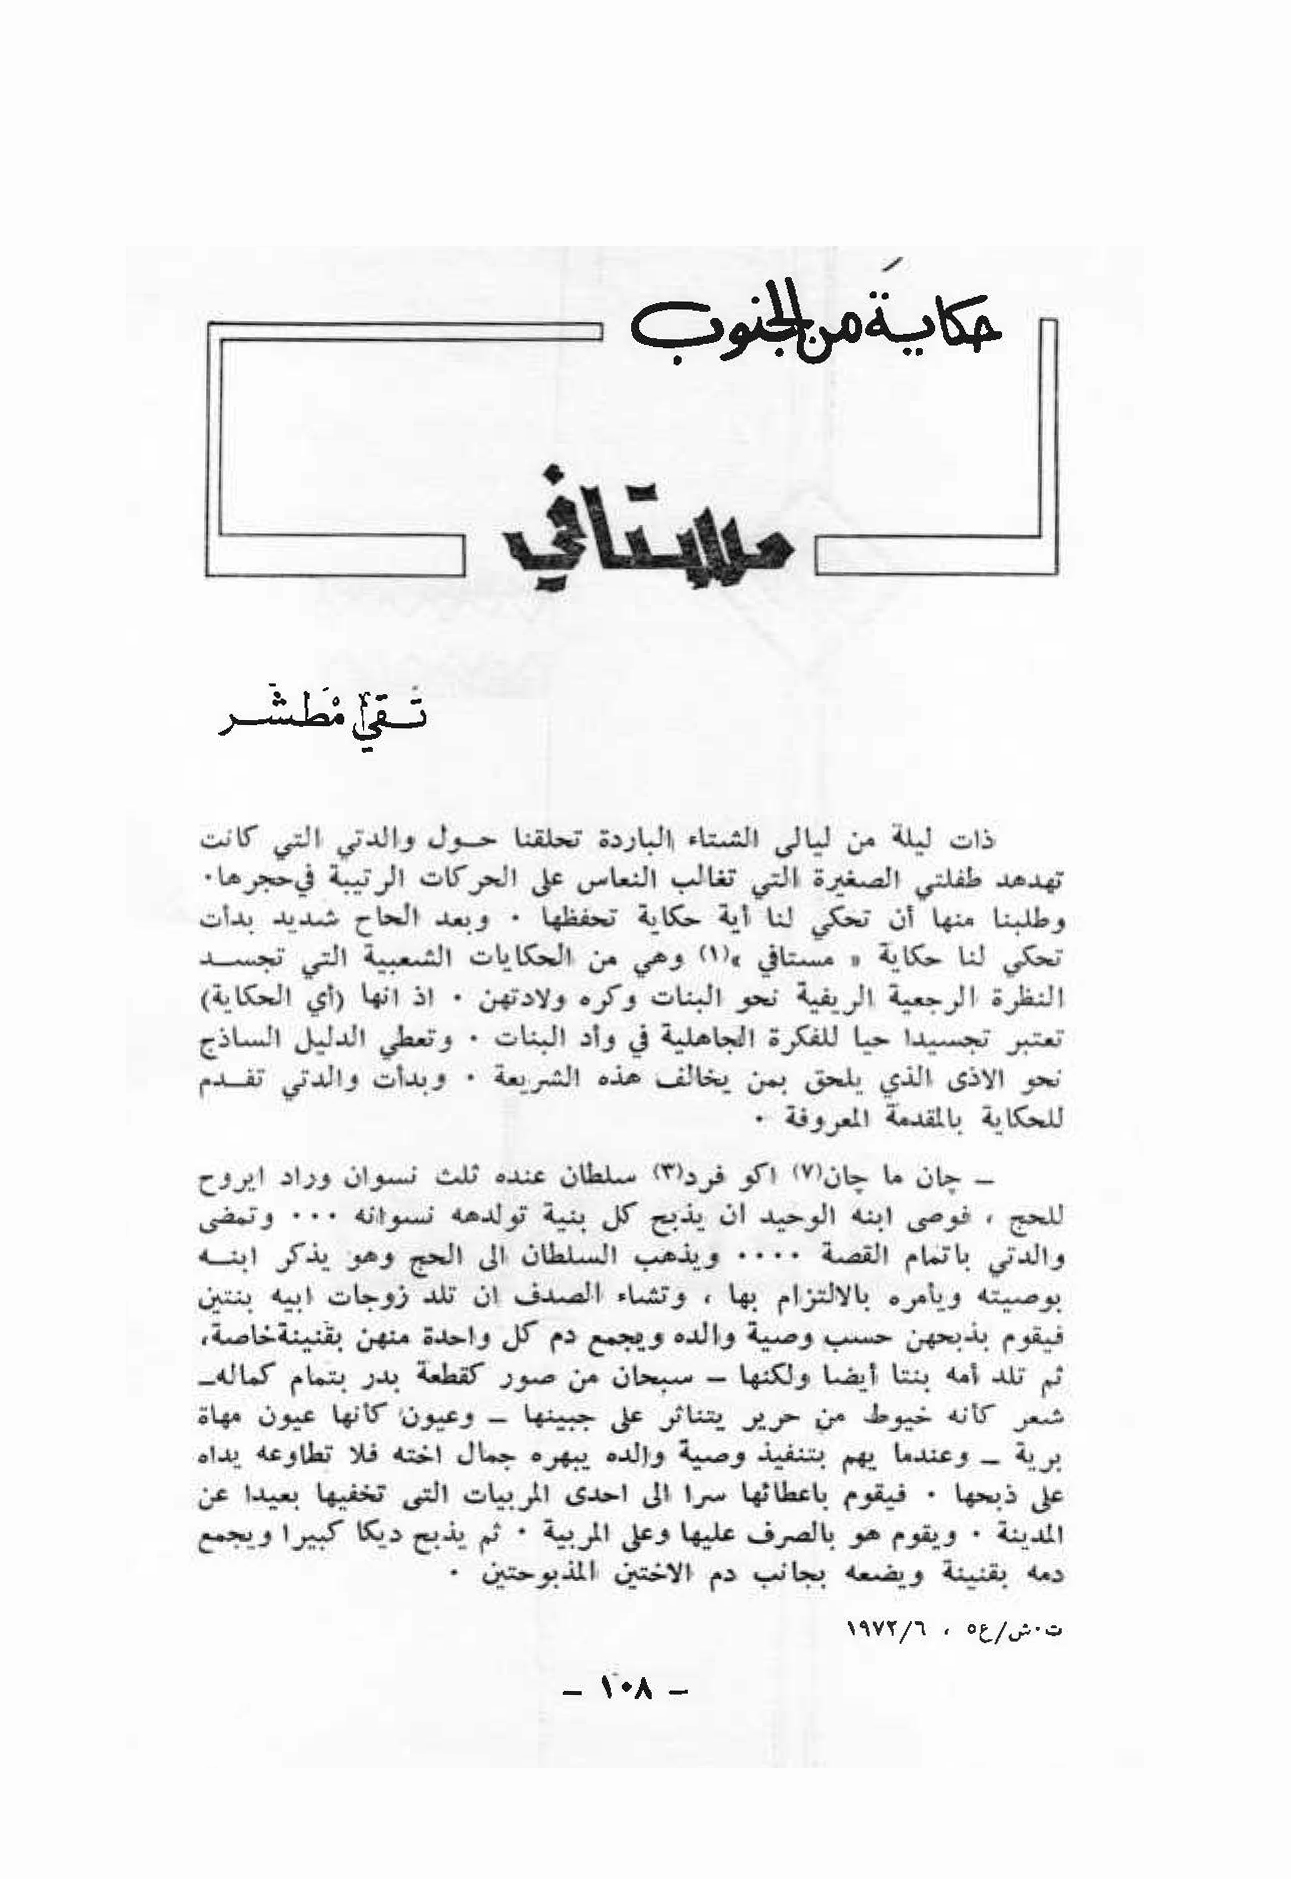 حكاية من الجنوب
مستافي
تقي مطشر
ذات ليلة من ليالي الشتاء الباردة تحلقنا حـول والدتي التي كانت
تهدهد طفلتي الصغيرة التي تغالب النعاس على الحركات الرتيبة في حجرها٠
وطلبنا منها أن تحكي لنا أية حكاية تحفظها ٠ وبعد الحاح شديد بدأت
تحكي لنا حكاية « مستافي »(١) وهي من الحكايات الشعبية التي تجســد
النظرة الرجعية الريفية نحو البنات وكره ولادتهن ٠ اذ انها (أي الحكاية)
تعتبر تجسيدا حيا للفكرة الجاهلية في وأد البنات ٠ وتعطي الدليل الساذج
نحو الاذى الذي يلحق بمن يخالف هذه الشريعة ٠ وبدأت والدتي تقـدم
للحكاية بالمقدمة المعروفة ٠
ــ چان ما چان(٧) اكو فرد(٣) سلطان عنده ثلث نسوان وراد ايروح
للحج ، فوصى ابنه الوحيد ان يذبح كل بنية تولدهه نسوانه ٠٠٠ وتمضى
والدتي باتمام القصة ٠٠٠٠ ويذهب السلطان الى الحج وهو يذكر ابنــه
بوصيته ويأمره بالالتزام بها ، وتشاء الصدف ان تلد زوجات ابيه بنتين
فيقوم بذبحهن حسب وصية والده ويجمع دم كل واحدة منهن بقنينة خاصة،
ثم تلد أمه بنتا أيضا ولكنها ــ سبحان من صور كقطعة بدر بتمام كماله ــ
شعر كأنه خيوط من حرير يتناثر على جبينها ــ وعيون كأنها عيون مهاة
برية ــ وعندما يهم بتنفيذ وصية والده يبهره جمال اخته فلا تطاوعه يداه
على ذبحها ٠ فيقوم باعطائها سرا الى احدى المربيات التى تخفيها بعيدا عن
المدينة ٠ ويقوم هو بالصرف عليها وعلى المربية ٠ ثم يذبح ديكا كبيرا ويجمع
دمه بقنينة ويضعه بجانب دم الاختين المذبوحتين ٠
ت٠ش/ع٥ ، ٦/١٩٧٢
ــ ١٠٨ ــ